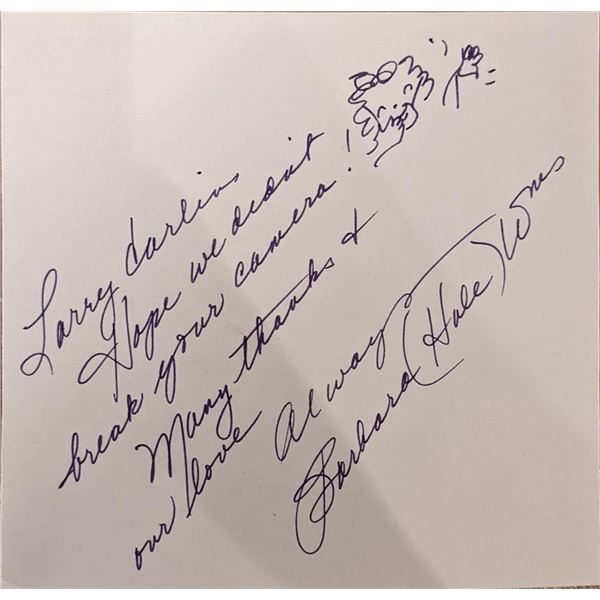 Larry darlin
Hope we didn't
break your camera!
Many thanks &
our love Always
Barbara (Hale) Wms